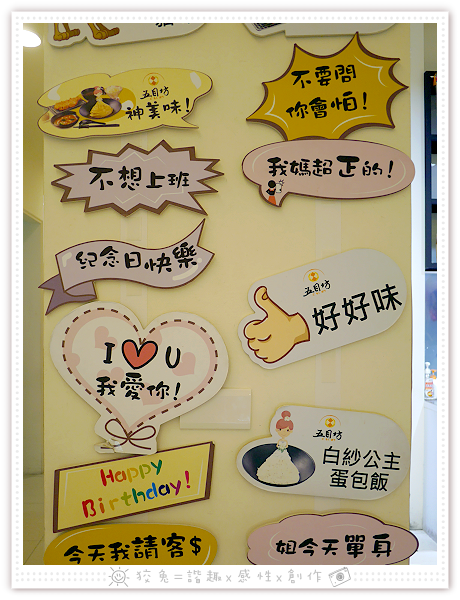 五目坊
神美味!
不要問
你會怕!
不想上班
我媽超正的!
紀念日快樂
五目坊
好好味
I U
我愛你!
五目坊
白紗公主
蛋包飯
Happy
Birthday!
今天我請客$
姐今天單身
狡兔=諧趣x感性x創作